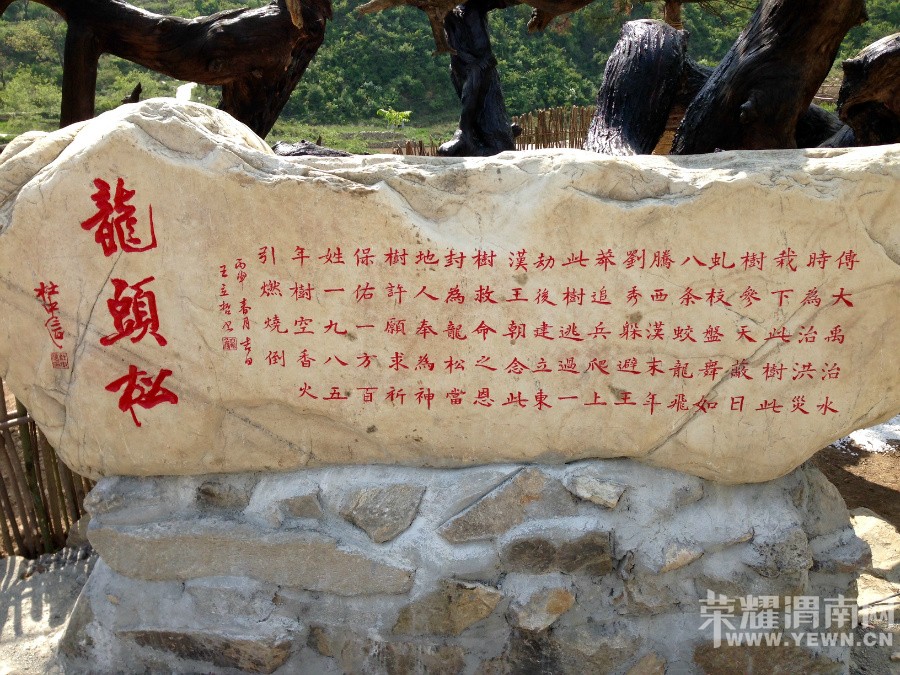 傳大禹治水
時為治洪災
栽下此樹此
樹參天蔽日
虬枝盤舞如
八条蛟龍飛
騰西漢末年
劉秀躲避王
莽追兵爬上
此樹逃過一
劫後建立東
漢王朝念此
樹救命之恩
封為龍松當
地人奉為神
樹許願求祈
保佑一方百
姓一九八五
年樹空香火
引燃燒倒
丙申春月吉日
王立哲
龍頭松
杜中信
荣耀渭南网
WWW.YEWN.CN